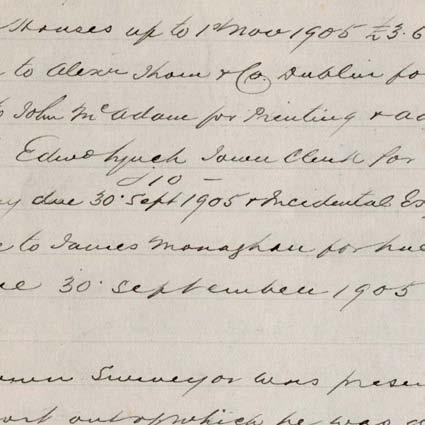 Houses up to 1st Nov 1905 £23.6
to Alexr Thom & Co. Dublin fo
John McAdam for Printing & ad
Edwd Lynch Town Clerk for
£10 –
due 30 Sept 1905 & Incidental Ex
to James Monaghan for
30 September 1905
Surveyor was presen
out of which he was a